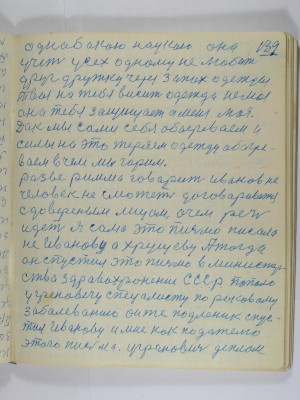 однабакою наукаю она 139
учит усех одному не любит
друг дружку через Запих одежды
твоя на тебя висит одежда не моя
она тебя защищает а меня мая.
Дак мы сами себя обогреваем и
силы на это теряем одежду обогре-
ваем в чем мы горим.
разве римма говарит Иванов не
человек не сможеть договариватся
с довереным лицом очем речь
идет Я сама это письмо писала
не Иванову а хрущеву А тогда
он спустил это письмо в министер
ства Здравохронение СССР попало
специалисту по раковому
заболеванию он же подленик спус-
тил Иванову и мне как подателю
этого письма. диплом